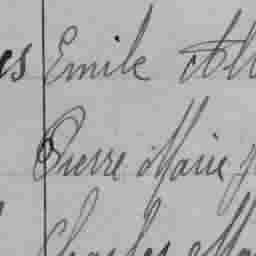 es Emile Al
Pierre Marie
Charles Ma